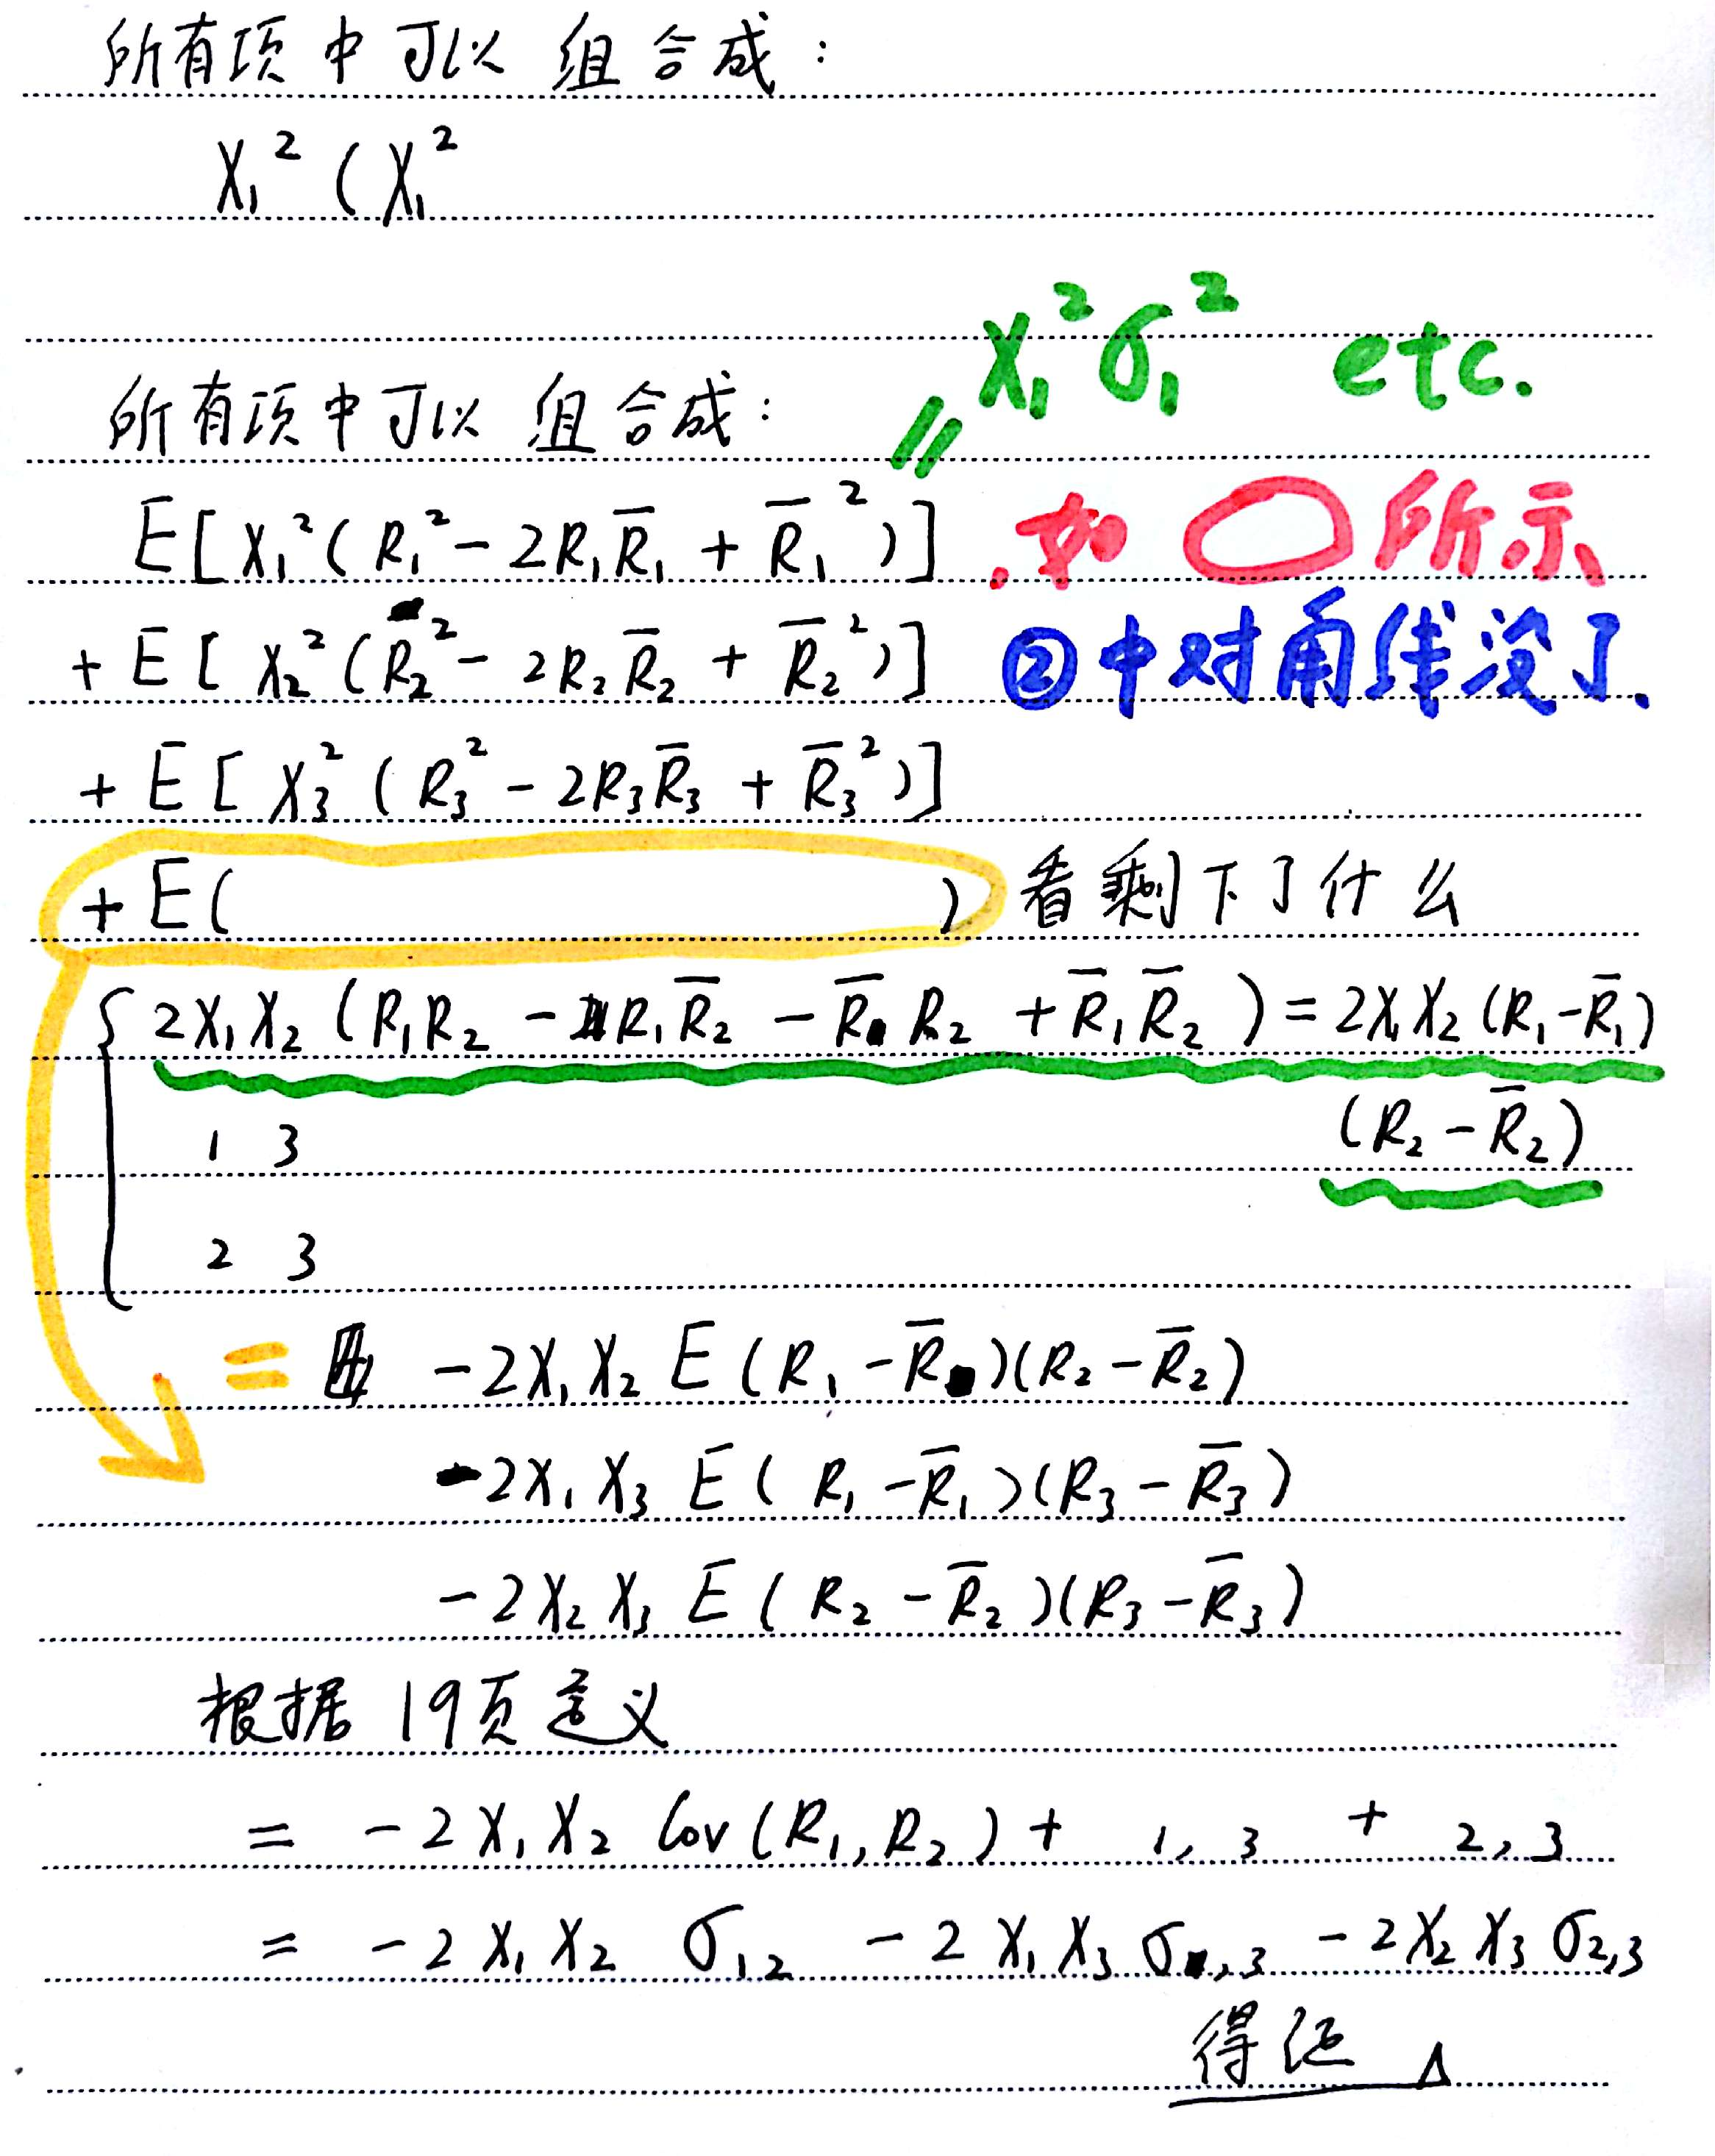 所有项中可以组合成：
X₁² (X₁²
X₁²σ₁² etc.
所有项中可以组合成：
E[X₁²(R₁² - 2R₁R̄₁ + R̄₁²)] . 如 ○ 所示
+ E[X₂²(R₂² - 2R₂R̄₂ + R̄₂²)] ②中对角线没了.
+ E[X₃²(R₃² - 2R₃R̄₃ + R̄₃²)]
+ E( ) 看剩下了什么
{ 2X₁X₂(R₁R₂ - R₁R̄₂ - R̄ R₂ + R̄₁R̄₂) = 2X₁X₂(R₁-R̄₁)
1 3 (R₂-R̄₂)
2 3
= -2X₁X₂ E(R₁-R̄)(R₂-R̄₂)
-2X₁X₃ E(R₁-R̄₁)(R₃-R̄₃)
-2X₂X₃ E(R₂-R̄₂)(R₃-R̄₃)
根据19页定义
= -2X₁X₂ Cov(R₁,R₂) + 1,3 + 2,3
= -2X₁X₂ σ₁₂ - 2X₁X₃ σ,₃ - 2X₂X₃σ₂,₃
得证 Δ